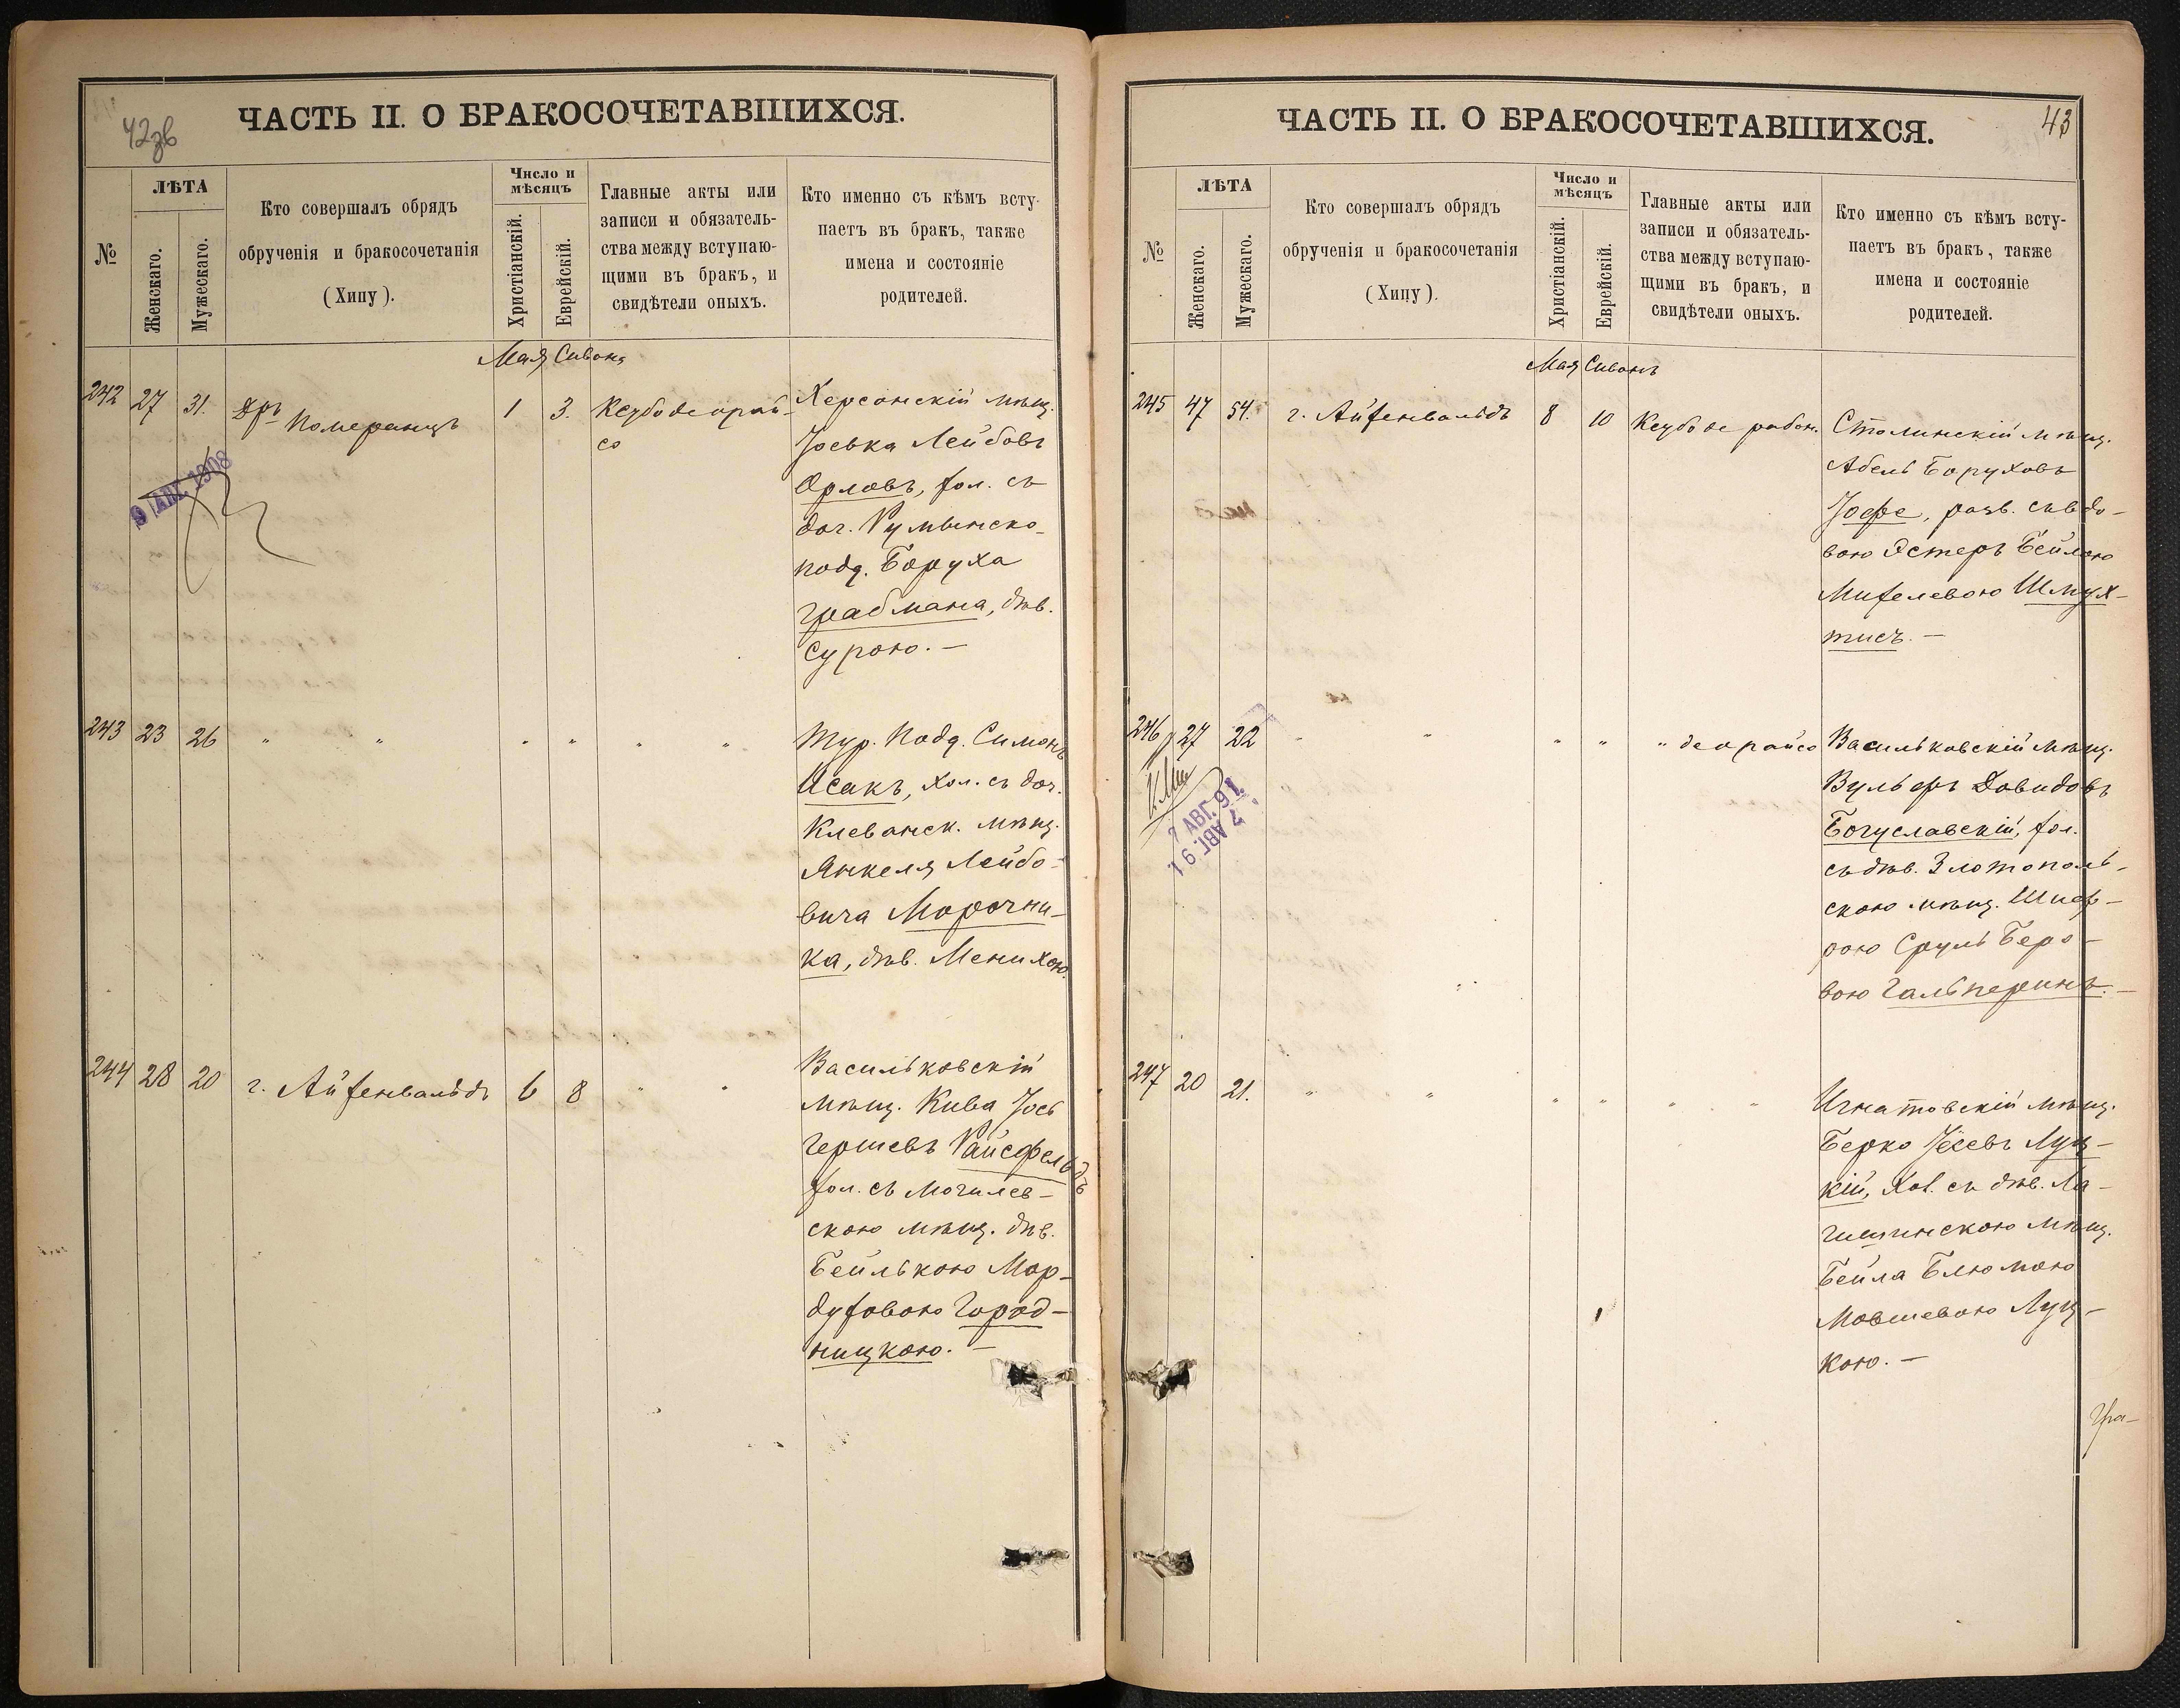 42 зв
ЧАСТЬ II. О БРАКОСОЧЕТАВШИХСЯ.
№
ЛѢТА
Женскаго.
Мужескаго.
Кто совершалъ обрядъ
обрученія и бракосочетанія
(Хипу).
Число и
мѣсяцъ
Христіанскій.
Еврейскій.
Главные акты или
записи и обязатель-
ства между вступаю-
щими въ бракъ, и
свидѣтели оныхъ.
Кто именно съ кѣмъ всту-
паетъ въ бракъ, также
имена и состояніе
родителей.
Мая Сивонъ
242 27 31. Др. Померанцъ 1 3. Ксубо деорай-
со
Херсонскій мѣщ.
Іоська Лейбовъ
Орловъ, хол. съ
доч. Румынско-
подд. Боруха
Грабмана, дѣв.
Сурою. —
9 АВГ. 1908
243 23 26 " " " " " "
Тур. Подд. Симонъ
Исакъ, хол. съ доч.
Клеванск. мѣщ.
Янкеля Лейбо-
вича Марочни-
ка, дѣв. Менихою.
244 28 20 г. Айзенвальдъ 6 8 " "
Васильковскій
мѣщ. Кива Іось
Гершевъ Райсфельдъ
хол. съ Могилев-
скою мѣщ. дѣв.
Бейлькою Мор-
духовою Город-
ницкою. —
43
ЧАСТЬ II. О БРАКОСОЧЕТАВШИХСЯ.
№
ЛѢТА
Женскаго.
Мужескаго.
Кто совершалъ обрядъ
обрученія и бракосочетанія
(Хипу).
Число и
мѣсяцъ
Христіанскій.
Еврейскій.
Главные акты или
записи и обязатель-
ства между вступаю-
щими въ бракъ, и
свидѣтели оныхъ.
Кто именно съ кѣмъ всту-
паетъ въ бракъ, также
имена и состояніе
родителей.
Мая Сивонъ
245 47 54. г. Айзенвальдъ 8 10 Ксубо де рабон.
Столинскій мѣщ.
Абель Боруховъ
Іофе, разв. съ вдо-
вою Эстеръ Бейлою
Михелевою Шмух-
тисъ. —
246 27 22 " " " " " деорайсо
Васильковскій мѣщ.
Вульфъ Давидовъ
Богуславскій, хол.
съ дѣв. Златополь-
скою мѣщ. Шиф-
рою Сруль Беро-
вою Гальперинъ. —
7 АВГ. 91.
7 АВГ. 91.
247 20 21. " " " " " "
Игнатовскій мѣщ.
Берко Іосевъ Луц-
кій, хол. съ дѣв. Ла-
гишинскою мѣщ.
Бейла Блюмою
Мовшевою Луц-
кою. —